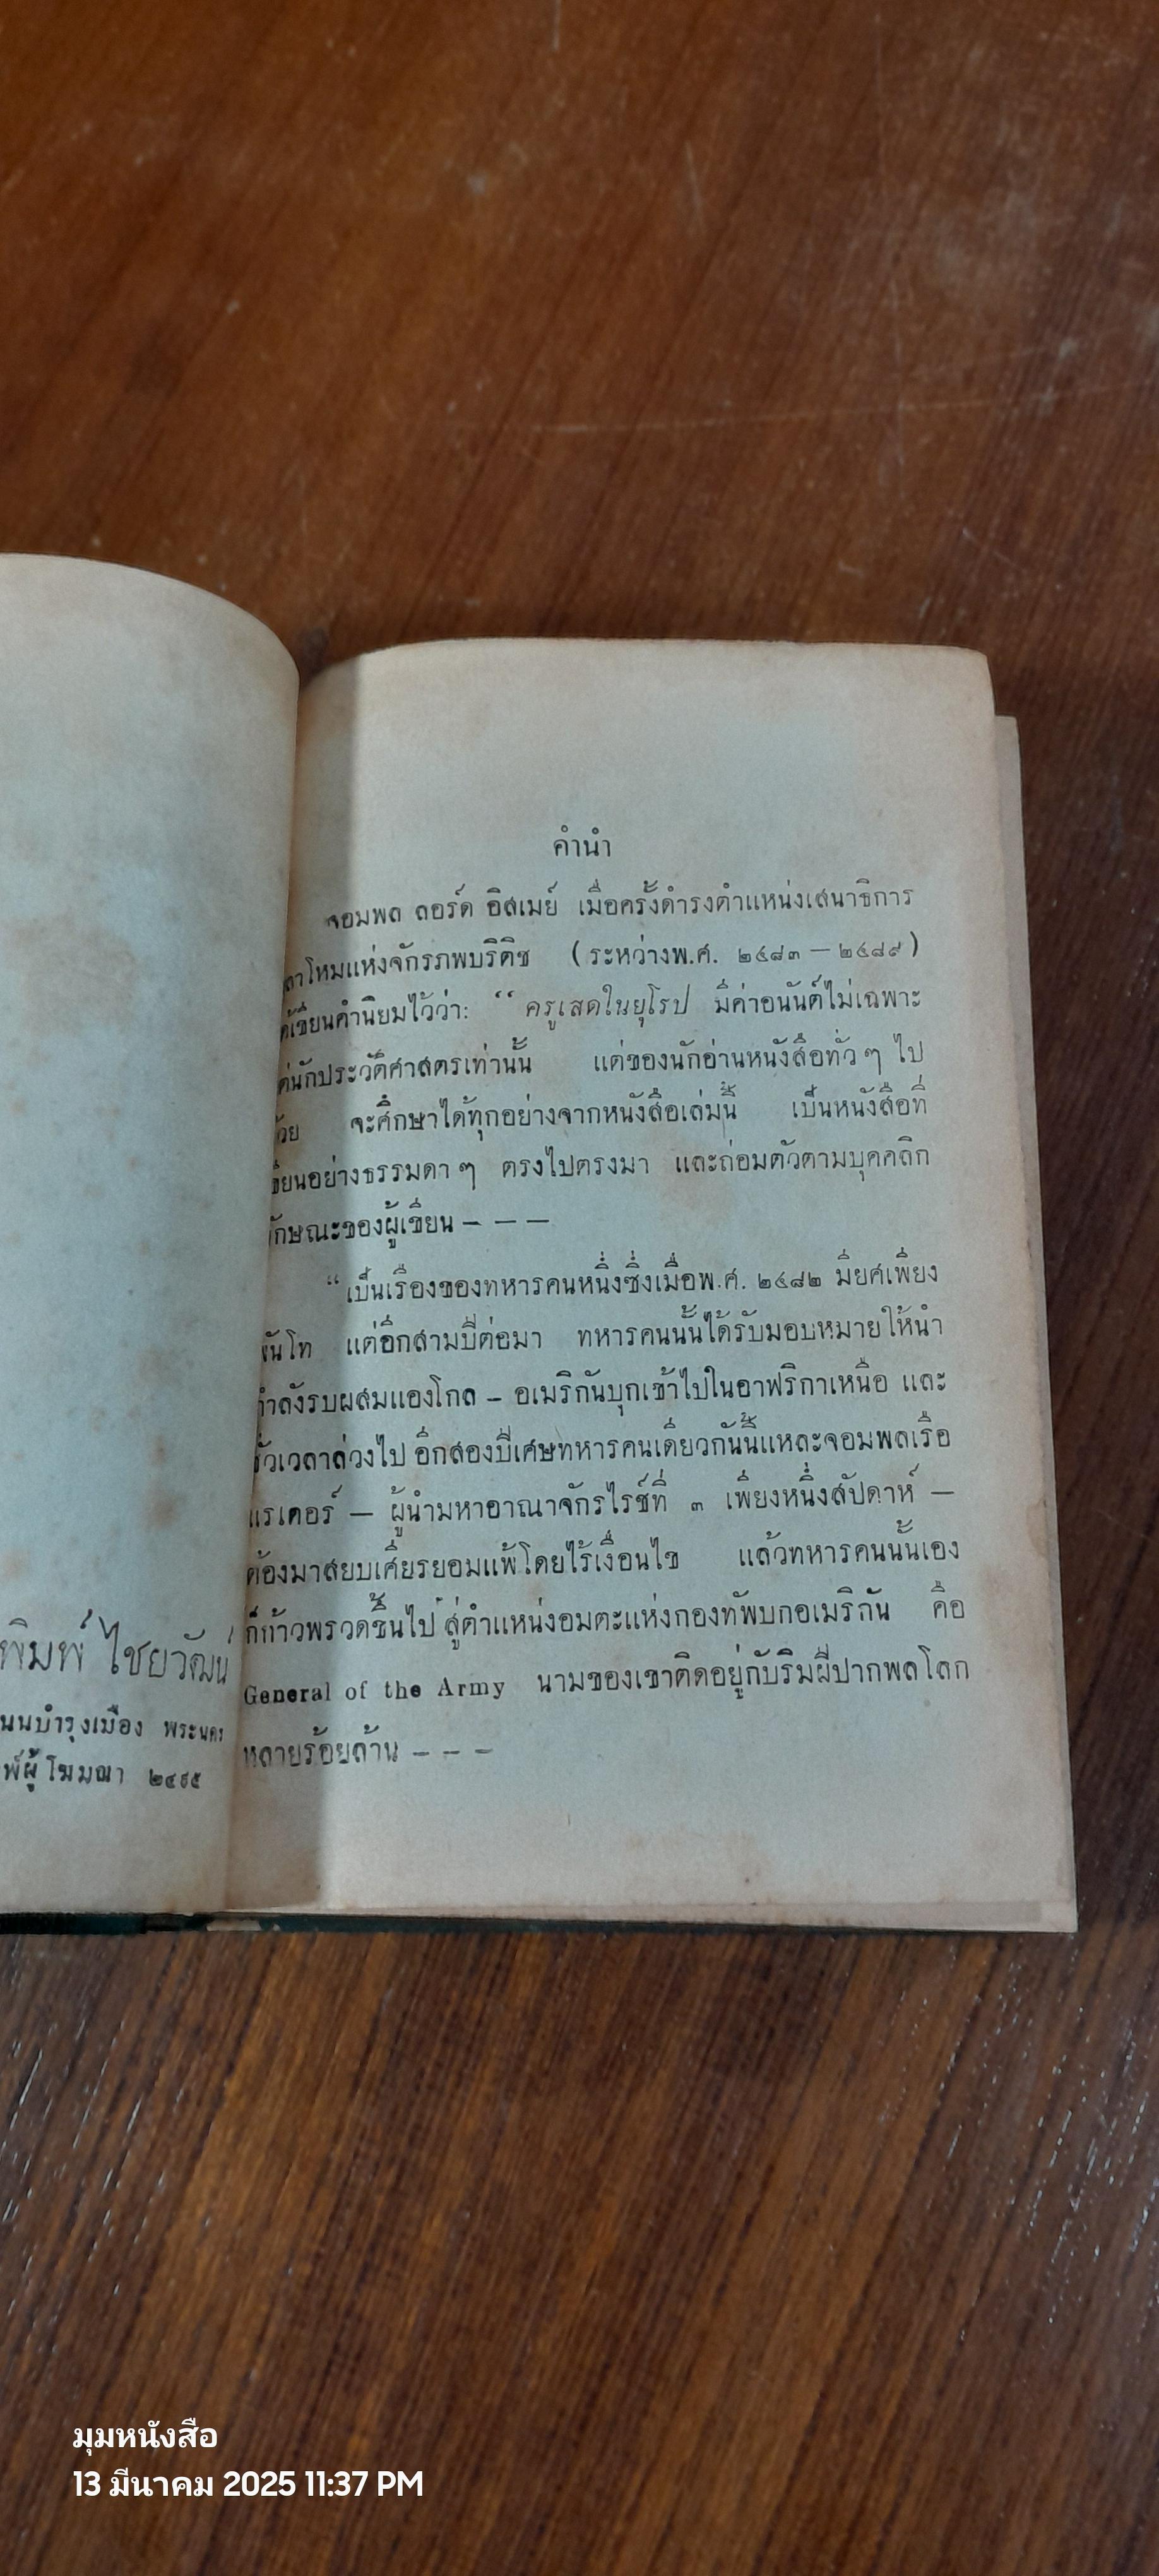 คำนำ
จอมพล ลอร์ด อิสเมย์ เมื่อครั้งดำรงตำแหน่งเสนาธิการ
กลาโหมแห่งจักรภพบริติช (ระหว่างพ.ศ. ๒๔๘๓ — ๒๔๘๙)
ได้เขียนคำนิยมไว้ว่า: “ ครูเสดในยุโรป มีค่าอนันต์ไม่เฉพาะ
แต่นักประวัติศาสตรเท่านั้น แต่ของนักอ่านหนังสือทั่วๆ ไป
ด้วย จะศึกษาได้ทุกอย่างจากหนังสือเล่มนี้ เป็นหนังสือที่
เขียนอย่างธรรมดาๆ ตรงไปตรงมา และถ่อมตัวตามบุคคลิก
ลักษณะของผู้เขียน – – –
“เป็นเรื่องของทหารคนหนึ่งซึ่งเมื่อพ.ศ. ๒๔๘๒ มียศเพียง
พันโท แต่อีกสามปีต่อมา ทหารคนนั้นได้รับมอบหมายให้นำ
กำลังรบผสมแองโกล – อเมริกันบุกเข้าไปในอาฟริกาเหนือ และ
ชั่วเวลาล่วงไป อีกสองปีเศษทหารคนเดียวกันนี้แหละจอมพลเรือ
แรเดอร์ — ผู้นำมหาอาณาจักรไรช์ที่ ๓ เพียงหนึ่งสัปดาห์ —
ต้องมาสยบเศียรยอมแพ้โดยไร้เงื่อนไข แล้วทหารคนนั้นเอง
ก็ก้าวพรวดขึ้นไปสู่ตำแหน่งอมตะแห่งกองทัพบกอเมริกัน คือ
General of the Army นามของเขาติดอยู่กับริมฝีปากพลโลก
หลายร้อยล้าน – – –
พิมพ์ ไชยวัฒน์
นนบำรุงเมือง พระนคร
พ์ผู้โฆษณา ๒๔๙๕
มุมหนังสือ
13 มีนาคม 2025 11:37 PM